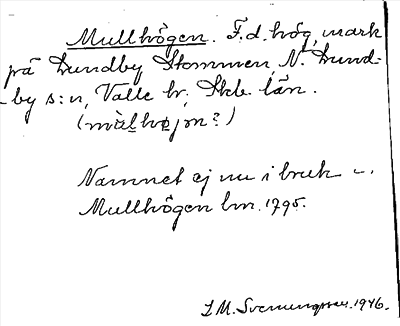 Mullhögen. F.d. hög, mark
på Lundby Stommen, N. Lund-
by s:n, Valle hr, Skb. län.
(mùl̲hø̲jɔn?)
Namnet ej nu i bruk –.
Mullhögen lm. 1795.
S.M. Svenungsson 1946.